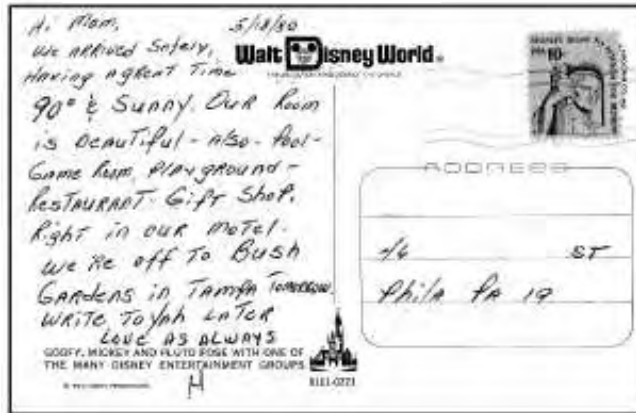 Hi Mom,
5/18/80
We ARRived Safely,
Having A Great Time
90° & Sunny. Our Room
is Beautiful - Also - Pool -
Game Rum, Playground -
Restaurant - Gift Shop.
Right in our motel.
We're off To Bush
Gardens in Tampa Tomorrow.
Write To yah Later
Love As Always
H
Walt Disney World
GOOFY, MICKEY AND PLUTO POSE WITH ONE OF
THE MANY DISNEY ENTERTAINMENT GROUPS
0101-0221
ADDRESS
ST
Phila PA 19